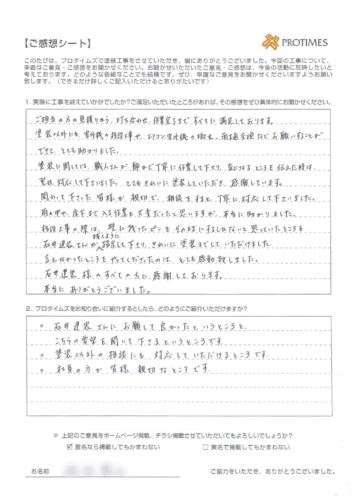 【ご感想シート】
PROTIMES
このたびは、プロタイムズで塗装工事をさせていただき、誠にありがとうございました。今回の工事について、
率直なご意見・ご感想をお聞かせください。お聞かせいただいたご意見・ご感想は、今後の活動に反映したいと
考えております。どのような些細なことでも結構です。ぜひ、率直なご意見をお聞かせいただきますようお願い
致します。（できるだけ詳しくご記入いただけるとありがたいです）
1. 実際に工事を終えていかがでしたか？ご満足いただいたところがあれば、その感想をぜひ具体的にお聞かせください。
ご担当の方の見積りから、打ち合わせ、作業完了まで すべてに満足しております。
できて、とても助かりました。
塗装に関しては、職人さんが 静かで丁寧に作業して下さり、気になるところを伝えた時は、
対応して下さいました。とてもきれいに塗装していただき、感謝しています。
関わって下さった皆様が親切で、相談しますと、丁寧に対応して下さいました。
雨の中や、夜までの作業も 大変だったと思いますが、本当に助かりました。
石井建装さんが 下さり、きれいに塗装までしていただけました。
言えなかったところをやってくださったのは、とても感動致しました。
石井建装様のすべての方に感謝しております。
本当にありがとうございました。
2. プロタイムズをお知り合いに紹介するとしたら、どのようにご紹介いただけますか？
○ 石井建装さんにお願いして良かったというところと、
こちらの要望を聞いて下さるというところです。
○ 塗装以外の相談にも対応していただけるところです。
○ 社員の方が皆様親切なところです。
※ 上記のご意見をホームページ掲載、チラシ掲載させていただいてもよろしいでしょうか？
☑ 匿名なら掲載してもかまわない　□ 実名で掲載してもかまわない
お名前
ご協力をいただき、ありがとうございました。